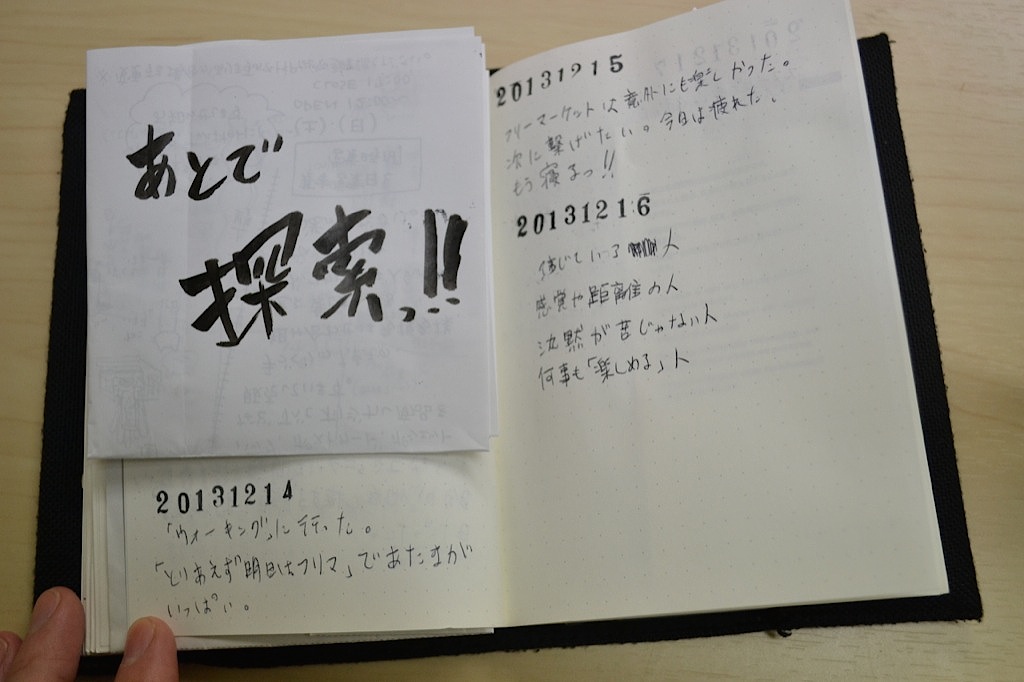 あとで
探索っ!!
20131214
「ウォーキング」に行った。
「とりあえず明日はフリマ」であたまが
いっぱい。
20131215
フリーマーケットは意外にも楽しかった。
次に繋げたい。今日は疲れた。
もう寝るっ!!
20131216
信じている 人
感覚や距離の人
沈黙が苦じゃない人
何事も「楽しめる」人